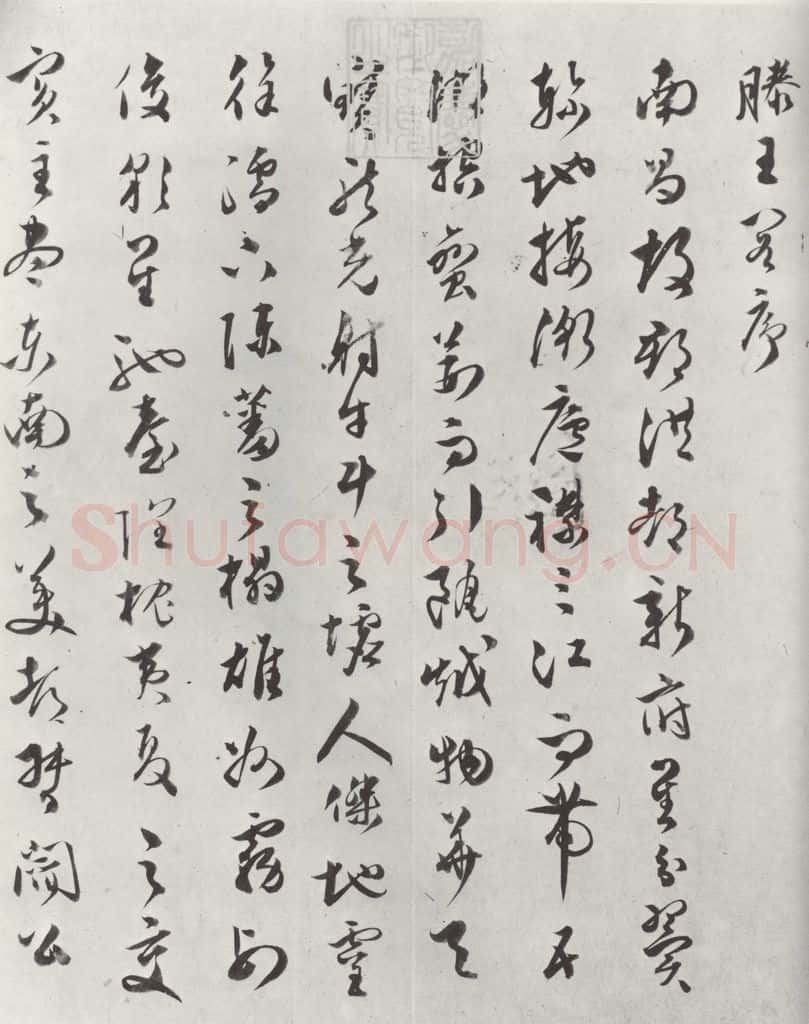 滕王閣序
南昌故郡洪都新府星分翼
軫地接衡廬襟三江而帶五
湖控蠻荊而引甌越物華天
寶龍光射牛斗之墟人傑地靈
徐孺下陳蕃之榻雄州霧列
俊彩星馳臺隍枕夷夏之交
賓主盡東南之美都督閻公
Shufawang.CN